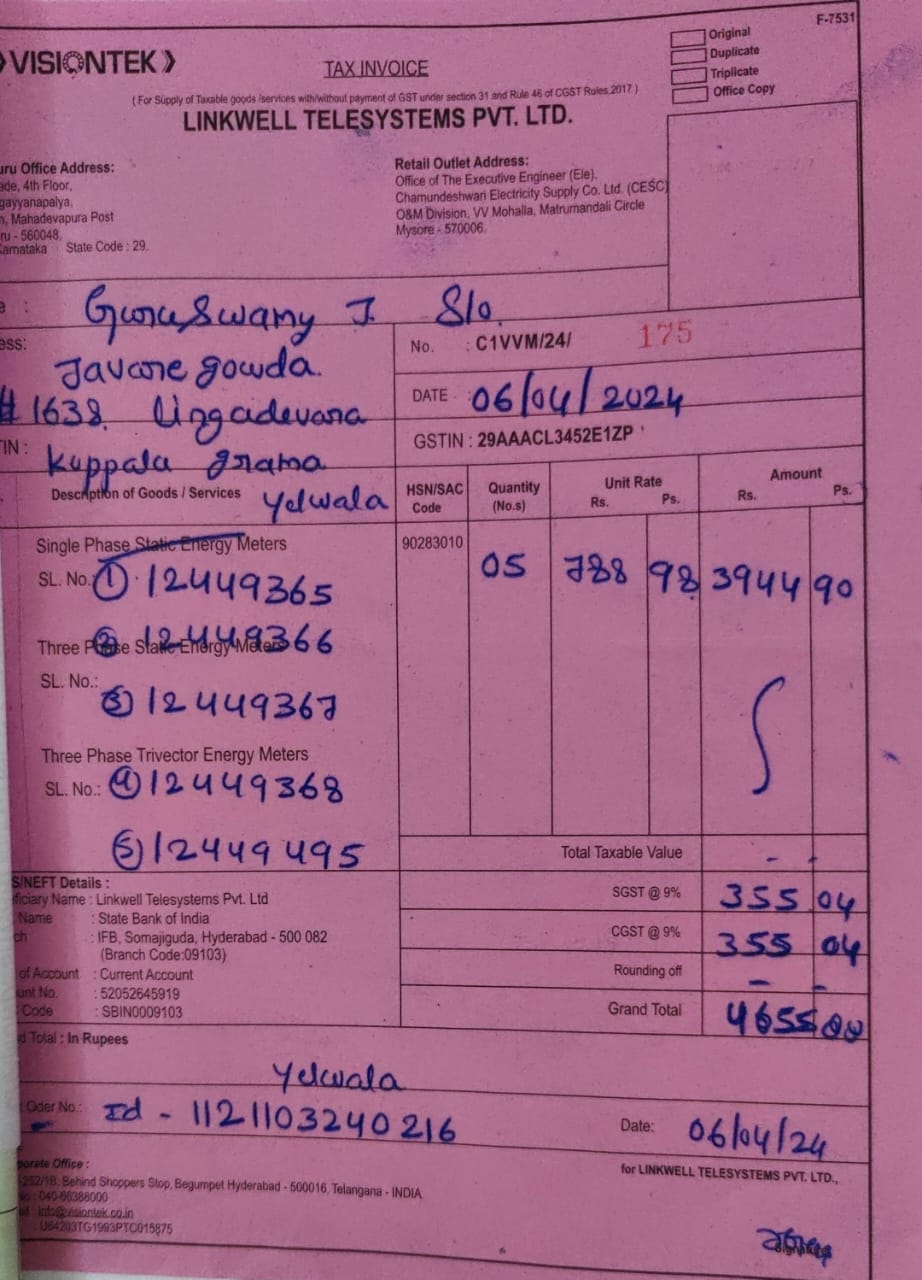 F-7531
Original
Duplicate
Triplicate
Office Copy
VISIONTEK
TAX INVOICE
( For Supply of Taxable goods /services with/without payment of GST under section 31 and Rule 46 of CGST Rules,2017 )
LINKWELL TELESYSTEMS PVT. LTD.
uru Office Address:
ade, 4th Floor,
gayyanapalya,
n, Mahadevapura Post
ru - 560048,
Karnataka State Code : 29.
Retail Outlet Address:
Office of The Executive Engineer (Ele).
Chamundeshwari Electricity Supply Co. Ltd. (CESC)
O&M Division, VV Mohalla, Matrumandali Circle
Mysore - 570006.
e : Guruswamy J. S/o.
ess: Javare gowda.
# 1638. Lingadevara
IN : Kuppala grama
Yelwala
No. : C1VVM/24/ 175
DATE : 06/04/2024
GSTIN : 29AAACL3452E1ZP
Description of Goods / Services HSN/SAC Code Quantity (No.s) Unit Rate Rs. Ps. Amount Rs. Ps.
Single Phase Static Energy Meters 90283010 05 788 98 3944 90
SL. No.: ① 12449365
Three Phase Static Energy Meters ② 12449366
SL. No.:
③ 12449367
Three Phase Trivector Energy Meters
SL. No.: ④ 12449368
⑤ 12449495
Total Taxable Value - -
SGST @ 9% 355 04
CGST @ 9% 355 04
Rounding off - -
Grand Total 4655 00
S/NEFT Details :
ficiary Name : Linkwell Telesystems Pvt. Ltd
Name : State Bank of India
ch : IFB, Somajiguda, Hyderabad - 500 082
(Branch Code:09103)
of Account : Current Account
unt No. : 52052645919
Code : SBIN0009103
d Total : In Rupees
Yelwala
Oder No.: Id - 1121103240216
Date: 06/04/24
for LINKWELL TELESYSTEMS PVT. LTD.,
porate Office :
-252/1B, Behind Shoppers Stop, Begumpet Hyderabad - 500016, Telangana - INDIA
No : 040-66388000
il : info@visiontek.co.in
: U64203TG1993PTC015875